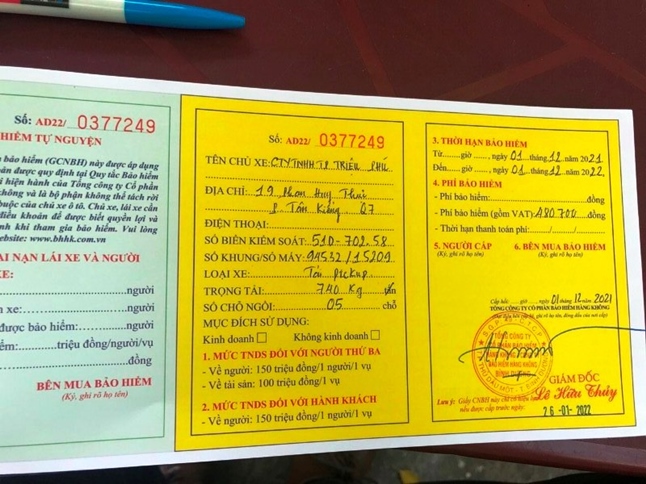 Số: AD22/ 0377249
HIỂM TỰ NGUYỆN
bảo hiểm (GCNBH) này được áp dụng
được quy định tại Quy tắc Bảo hiểm
hiện hành của Tổng công ty Cổ phần
không và là bộ phận không thể tách rời
buộc của chủ xe ô tô. Chủ xe, lái xe cần
điều khoản để được biết quyền lợi và
hành khi tham gia bảo hiểm. Vui lòng
website: www.bhhk.com.vn
AI NẠN LÁI XE VÀ NGƯỜI
XE:
người
xe: người
được bảo hiểm: người
triệu đồng/người/vụ
đồng
BÊN MUA BẢO HIỂM
(Ký, ghi rõ họ tên)
Số: AD22/ 0377249
TÊN CHỦ XE: CTY TNHH TP TRIỆU PHÚ
ĐỊA CHỈ: 19 Phan Huy Thực
P. Tân Kiểng Q7
ĐIỆN THOẠI:
SỐ BIỂN KIỂM SOÁT: 51D-702.58
SỐ KHUNG/SỐ MÁY: 94532/15209
LOẠI XE: Tải Pickup
TRỌNG TẢI: 740 Kg tấn
SỐ CHỖ NGỒI: 05 chỗ
MỤC ĐÍCH SỬ DỤNG:
Kinh doanh Không kinh doanh
1. MỨC TNDS ĐỐI VỚI NGƯỜI THỨ BA
- Về người: 150 triệu đồng/1 người/1 vụ
- Về tài sản: 100 triệu đồng/1 vụ
2. MỨC TNDS ĐỐI VỚI HÀNH KHÁCH
- Về người: 150 triệu đồng/1 người/1 vụ
3. THỜI HẠN BẢO HIỂM
Từ.....giờ ....., ngày 01 tháng 12 năm 2021
Đến.....giờ ....., ngày 01 tháng 12 năm 2022
4. PHÍ BẢO HIỂM
- Phí bảo hiểm: đồng
- Phí bảo hiểm (gồm VAT): 480.700 đồng
- Thời hạn thanh toán phí: / /
5. NGƯỜI CẤP 6. BÊN MUA BẢO HIỂM
(Ký, ghi rõ họ tên) (Ký, ghi rõ họ tên)
Cấp hồi: giờ , ngày 01 tháng 12 năm 2021
TỔNG CÔNG TY CỔ PHẦN BẢO HIỂM HÀNG KHÔNG
TỔNG CÔNG TY
CỔ PHẦN BẢO HIỂM
HÀNG KHÔNG
BẢO HIỂM HÀNG KHÔNG
BÌNH DƯƠNG
GIÁM ĐỐC
Lê Hữu Thủy
Lưu ý: Giấy CNBH này chỉ có hiệu
nếu được cấp trước ngày: 26-01-2022